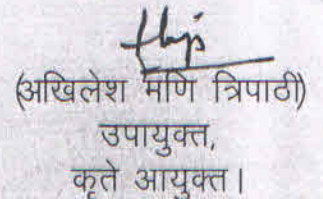 (अखिलेश मणि त्रिपाठी)
उपायुक्त,
कृते आयुक्त।